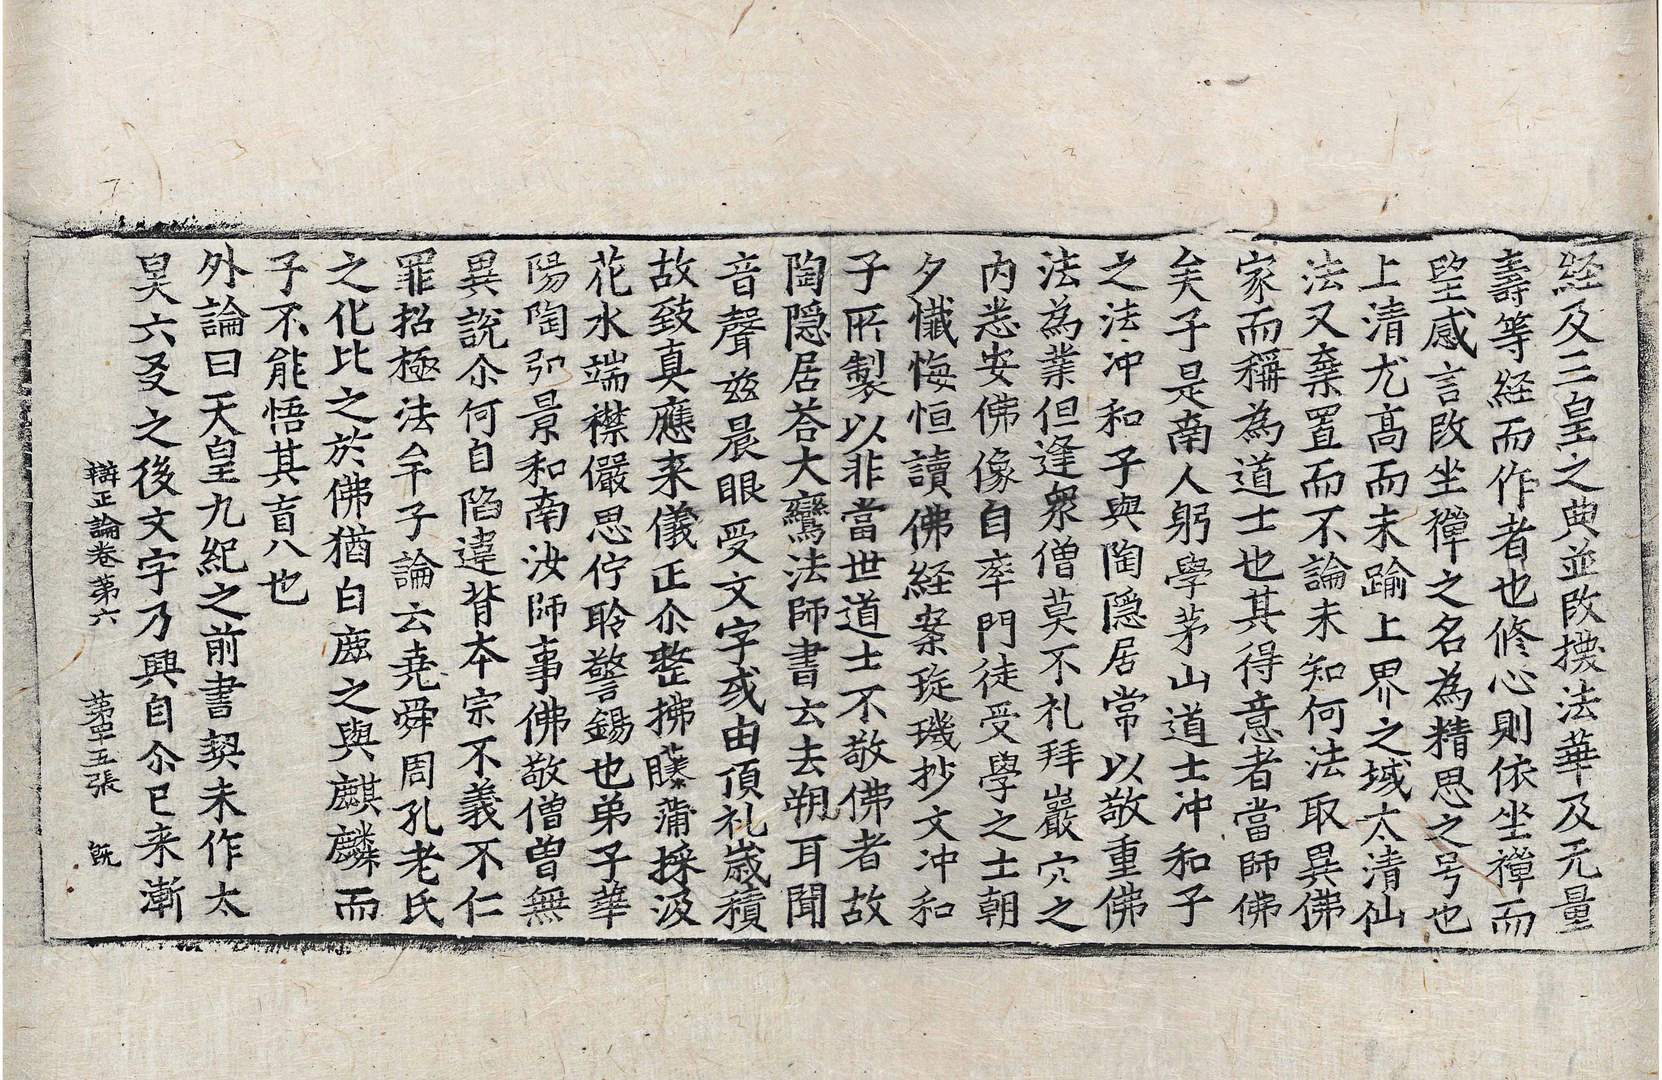 経及三皇之典並改換法華及无量
壽等経而作者也修心則依坐禅而
望感言改坐禪之名為精思之号也
上清尤高而未踰上界之域太清仙
法又棄置而不論未知何法取異佛
家而稱為道士也其得意者當師佛
矣子是南人躬學茅山道士冲和子
之法冲和子與陶隠居常以敬重佛
法為業但逢衆僧莫不礼拜巖穴之
内悉安佛像自率門徒受學之士朝
夕懺悔恒讀佛経案琁璣抄文冲和
子所製以非當世道士不敬佛者故
陶隠居荅大鸞法師書云去朔耳聞
音聲兹晨眼受文字或由頂礼歳積
故致真應来儀正尒整拂藤蒲採汲
花水端襟儼思佇聆警錫也弟子華
陽陶弘景和南汝師事佛敬僧曽無
異說尒何自陷違背本宗不義不仁
罪招極法牟子論云堯舜周孔老氏
之化比之於佛猶白鹿之與麒麟而
子不能悟其盲八也
外論曰天皇九紀之前書契未作太
昊六爻之後文字乃興自尒已来漸
辯正論卷第六 第四五張 既